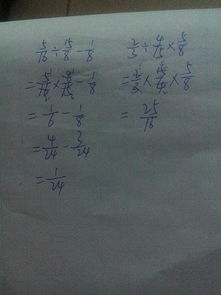 5/16 ÷ 15/8 - 1/8
= 5/16 × 8/15 - 1/8
= 1/6 - 1/8
= 4/24 - 3/24
= 1/24
2/3 ÷ 4/15 × 5/8
= 2/3 × 15/4 × 5/8
= 25/16